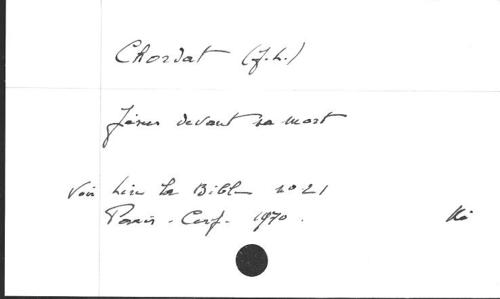 Chordat (J.L.)
Jésus devant sa mort
Voir Lire la Bible n° 21
Paris - Cerf - 1970.